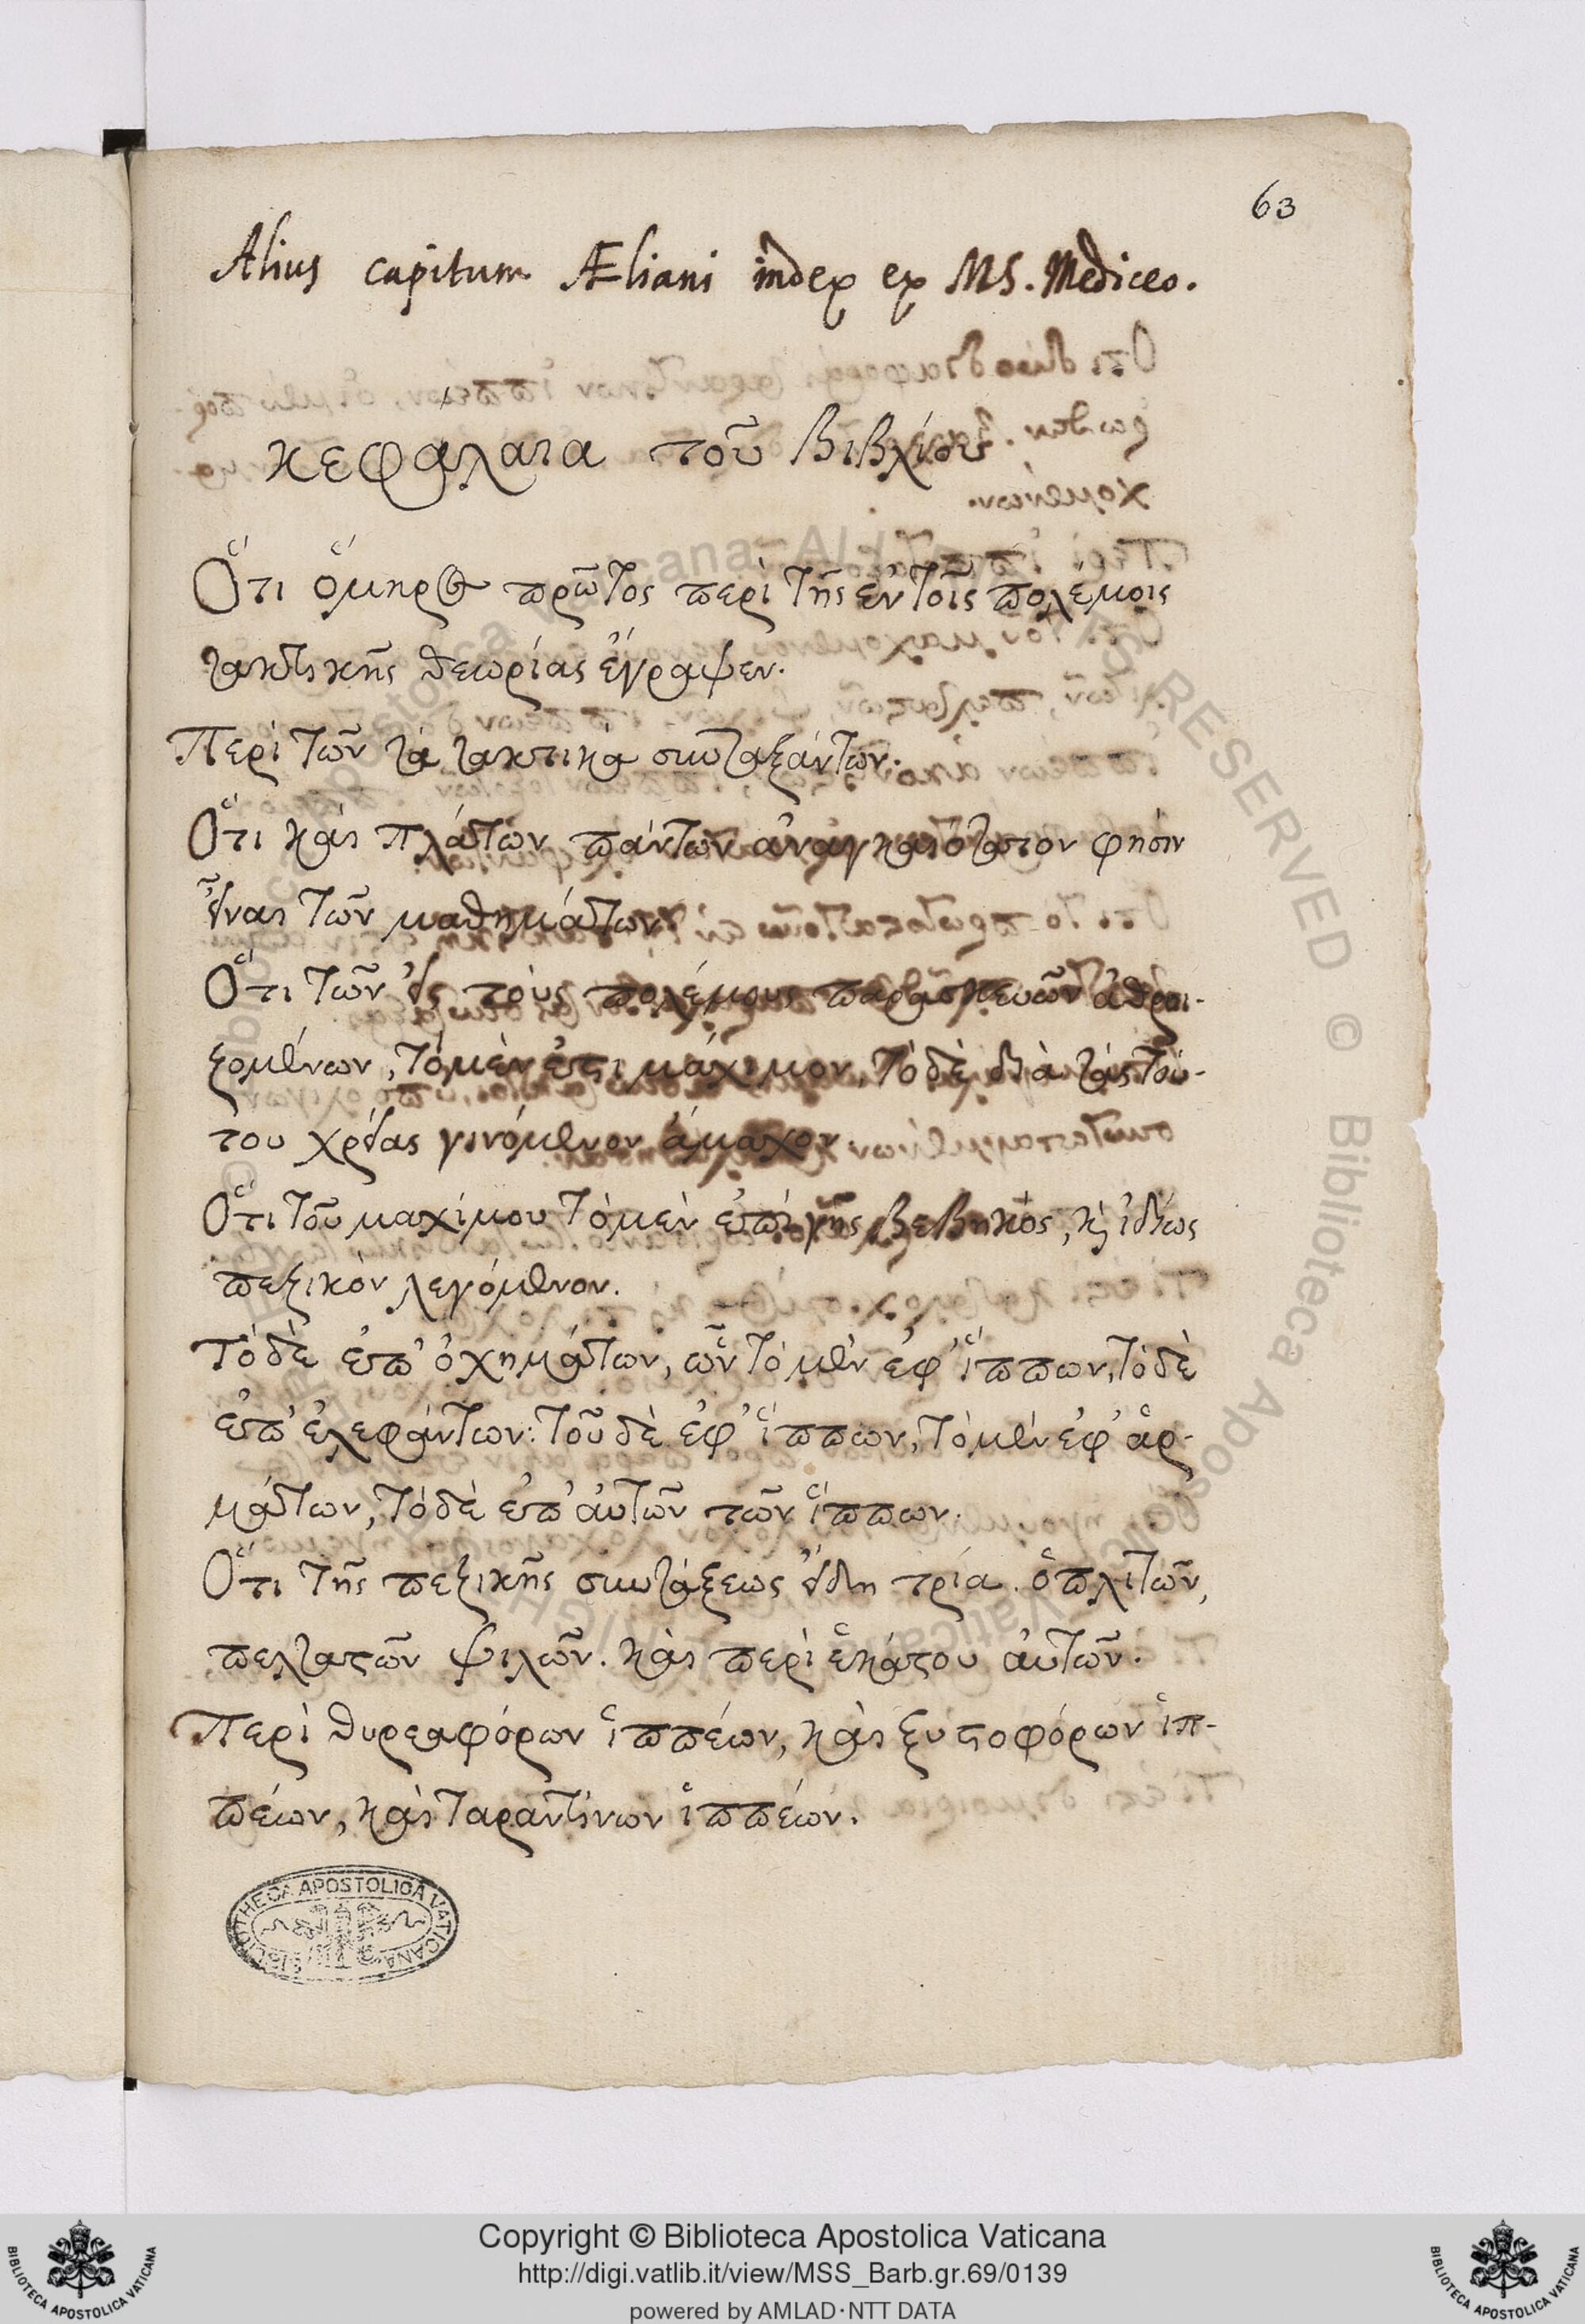 63
Alius capitum Æliani index ex MS. Mediceo.
κεφάλαια τοῦ βιβλίου
Ὅτι ὅμηρος πρῶτος περὶ τῆς ἐν τοῖς πολέμοις
τακτικῆς θεωρίας ἔγραψεν.
Περὶ τῶν τὰ τακτικὰ συνταξάντων.
Ὅτι καὶ πλάτων πάντων ἀναγκαιότατον φησὶν
εἶναι τῶν μαθημάτων
Ὅτι τῶν εἰς τοὺς πολέμους παρασκευῶν ἀθροι-
ζομένων, τὸ μὲν ἐστι μάχιμον, τὸ δὲ διὰ τὰς τού-
του χρείας γινόμενον ἄμαχον.
Ὅτι τοῦ μαχίμου τὸ μὲν ἐπὶ γῆς βεβηκὸς, καὶ ἰδίως
πεζικὸν λεγόμενον.
τὸ δὲ ἐπ' ὀχημάτων, ὧν τὸ μὲν ἐφ' ἵππων, τὸ δὲ
ἐπ' ἐλεφάντων: τοῦ δὲ ἐφ' ἵππων, τὸ μὲν ἐφ' ἁρ-
μάτων, τὸ δὲ ἐπ' αὐτῶν τῶν ἵππων.
Ὅτι τῆς πεζικῆς συντάξεως εἴδη τρία. ὁπλιτῶν,
πελταστῶν ψιλῶν. καὶ περὶ ἑκάστου αὐτῶν.
Περὶ θυρεαφόρων ἱππέων, καὶ ξυστοφόρων ἱπ-
πέων, καὶ ταραντίνων ἱππέων.
BIBLIOTHECA APOSTOLICA VATICANA
Copyright © Biblioteca Apostolica Vaticana
http://digi.vatlib.it/view/MSS_Barb.gr.69/0139
powered by AMLAD·NTT DATA
BIBLIOTECA APOSTOLICA VATICANA
BIBLIOTECA APOSTOLICA VATICANA